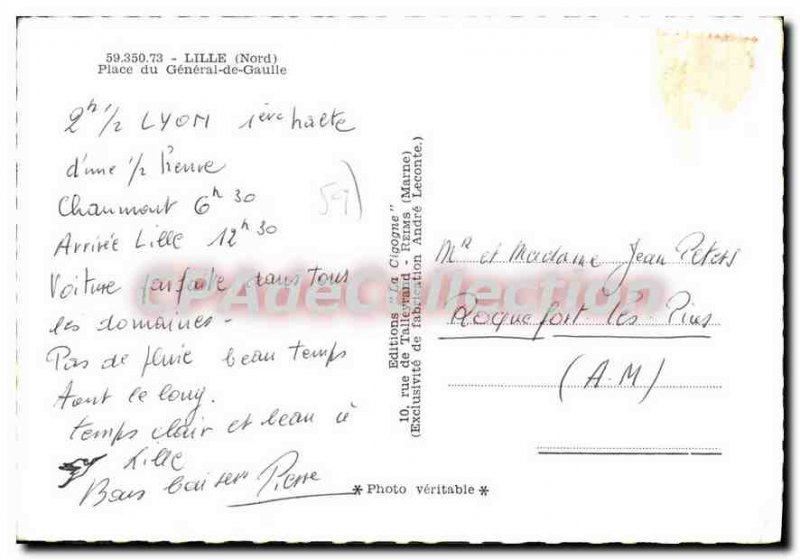 59.350.73 - LILLE (Nord)
Place du Général-de-Gaulle
2h 1/2 LYON 1ère halte
d'une 1/2 heure
Chaumont 6h 30
Arrivée Lille 12h 30
Voiture parfaite dans tous
les domaines -
Pas de pluie beau temps
tout le long.
temps clair et beau à
Lille
Bons baisers Pierre
59)
Editions "La Cigogne"
10, rue de Talleyrand, REIMS (Marne)
(Exclusivité de fabrication André Leconte.)
* Photo véritable *
Mr et Madame Jean Peters
Roquefort les Pins
(A.M)
CPAdeCollection